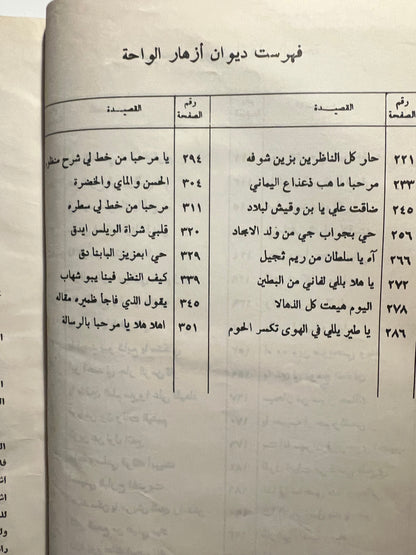 فهرست ديوان أزهار الواحة
رقم الصفحة القصيدة رقم الصفحة القصيدة
٢٢١ حار كل الناظرين بزين شوفه
٢٣٣ مرحبا ما هب ذعذاع اليماني
٢٤٥ ضاقت علي يا بن وقيش لبلاد
٢٥٤ حي بجواب جي من ولد الامجاد
٢٦٦ آه يا سلطان من ريم ثجيل
٢٧٢ يا هلا بللي لفاني من البطين
٢٧٨ اليوم هيعت كل الذهالا
٢٨٦ يا طير يللي في الهوى تكسر الحوم
٢٩٤ يا مرحبا من خط لي شرح منظو
٣٠٤ الحسن والماي والخضرة
٣١١ مرحبا من خط لي سطره
٣٢٠ قلبي شراة الويلس ايدق
٣٢٩ حي ابعزيز البابنا دق
٣٣٩ كيف النظر فينا يبو شهاب
٣٤٥ يقول الذي فاجا ظميره مقاله
٣٥١ اهلا هلا يا مرحبا بالرسالة